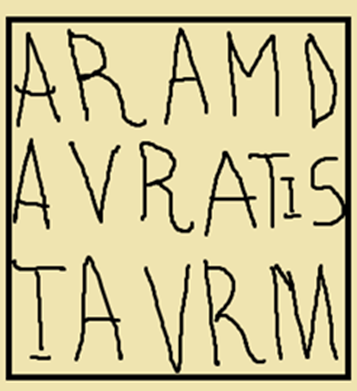 ARAMD
AVRATIS
TAVRM